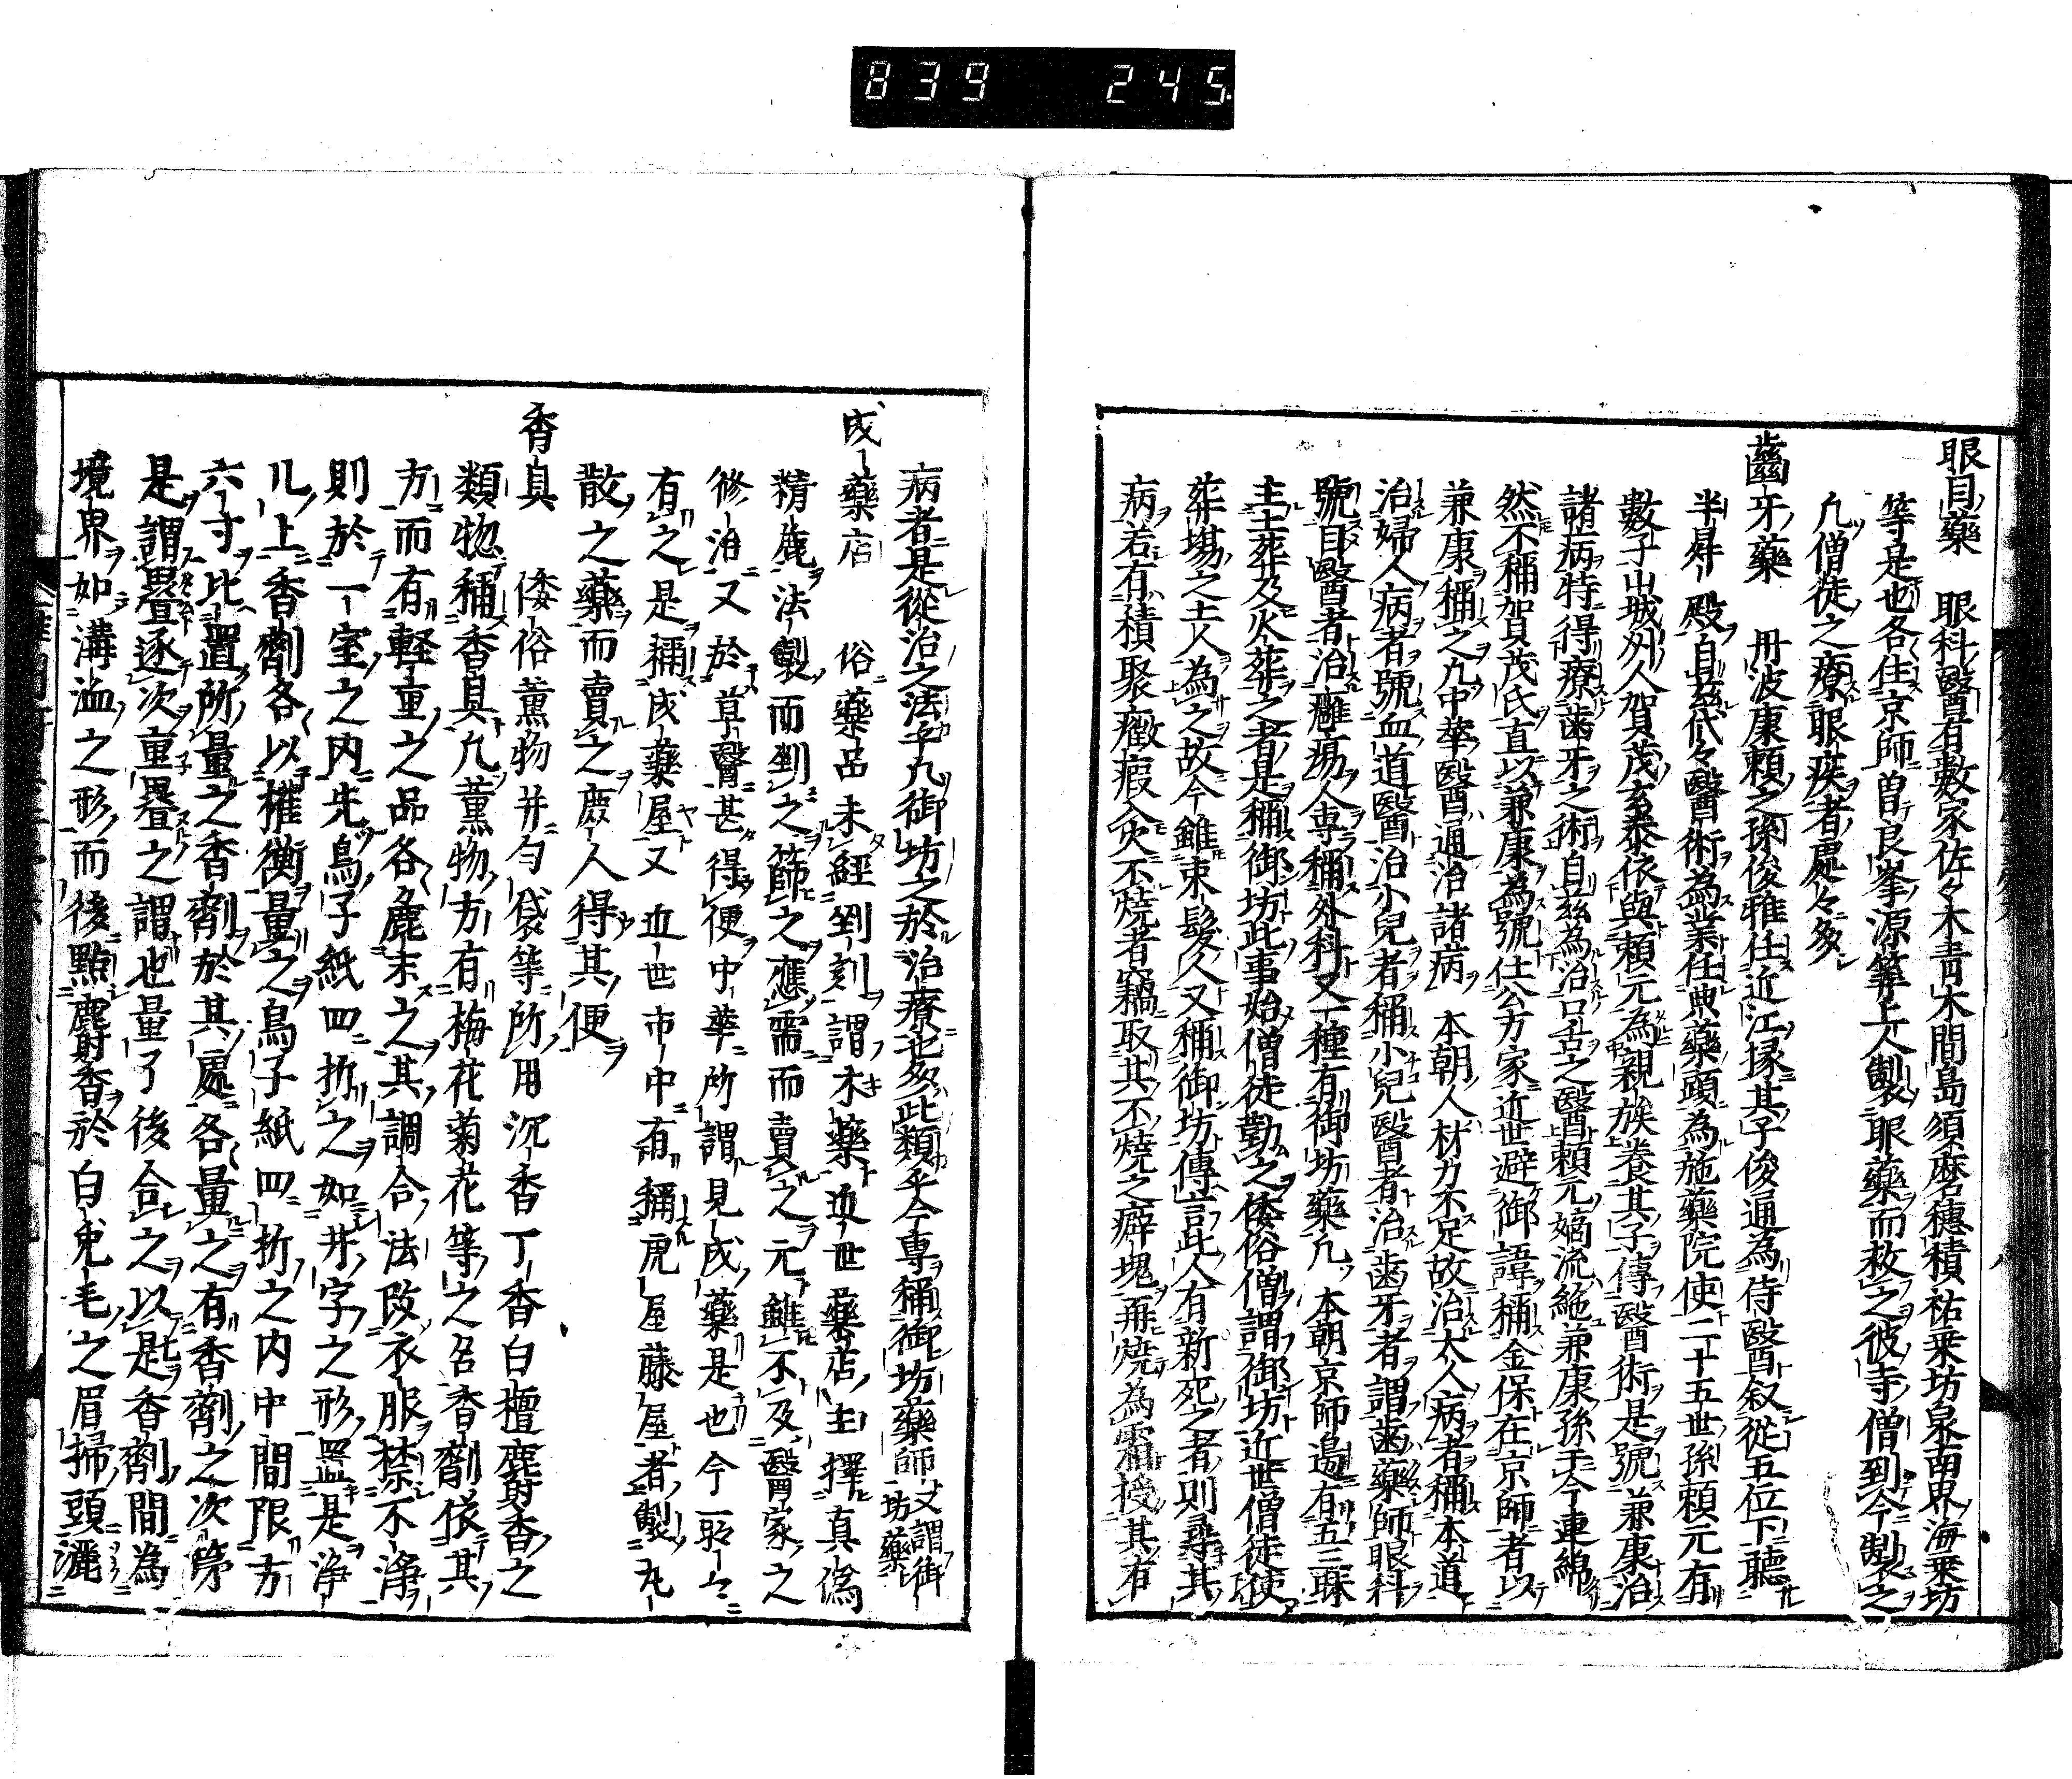 839 245
眼目藥 眼科醫有數家佐々木青木間島須磨穗積祐乗坊泉南界海乗坊
等是也各住京師曽良峯源筭上人製眼藥而救之彼寺僧到今製之
凢僧徒之療眼疾者處々多
齒牙藥 丹波康頼之孫俊雅任近江掾其子俊通為侍醫叙從五位下聽
半昇殿自茲代々醫術為業任典藥頭為施藥院使二十五世孫頼元有
數子出城外人賀茂玄泰依與頼元為親族養其子傳醫術是號兼康治
諸病特得療歯牙之術自茲為治口舌之醫頼元嫡流絶兼康孫于今連綿
然不稱賀茂氏直以兼康為號仕公方家近世避御諱稱金保在京師者以
兼康稱之凢中華醫通治諸病 本朝人材力不足故治大人病者稱本道
治婦人病者號血道醫治小兒者稱小兒醫者治歯牙者謂歯藥師眼科
號目醫者治癰瘍人専稱外科又一種有御坊藥凢 本朝京師邊有五三昧
主土葬及火葬之者是稱御坊此事始僧徒勤之倭俗僧謂御坊近世僧徒使
葬場之土人為之故今雖束髪人又稱御坊傳言此人有新死之者則尋其
病若有積聚癥瘕入火不燒者竊取其不燒之癖塊再燒為霜授其有
病者是從治之法乎凢御坊之於治療也多此類乎今専稱御坊藥師又謂御坊藥
成藥店 俗藥品未經剉刻謂木藥近世藥店主擇真偽
精麁法製而剉之篩之應需而賣之元雖不及醫家之
修治又於草醫甚得便中華所謂見成藥是也今一町々
有之是稱成藥屋又近世市中有稱虎屋藤屋者製丸
散之藥而賣之廢人得其便
香具 倭俗薫物并匀袋等所用沉香丁香白檀麝香之
類物稱香具凢薫物方有梅花菊花等之名香劑依其
方而有軽重之品各麁末之其調合法改衣服禁不淨
則於一室之内先鳥子紙四折之如井字之形置是淨
几上香劑各以權衡量之鳥子紙四折之内中間限方
六寸比置所量之香劑於其處各量之有香劑之次第
是謂疊逐次重疊之謂也量了後合之以是香劑間為
境界如溝洫之形而後點麝香於白兎毛之眉掃頭灑